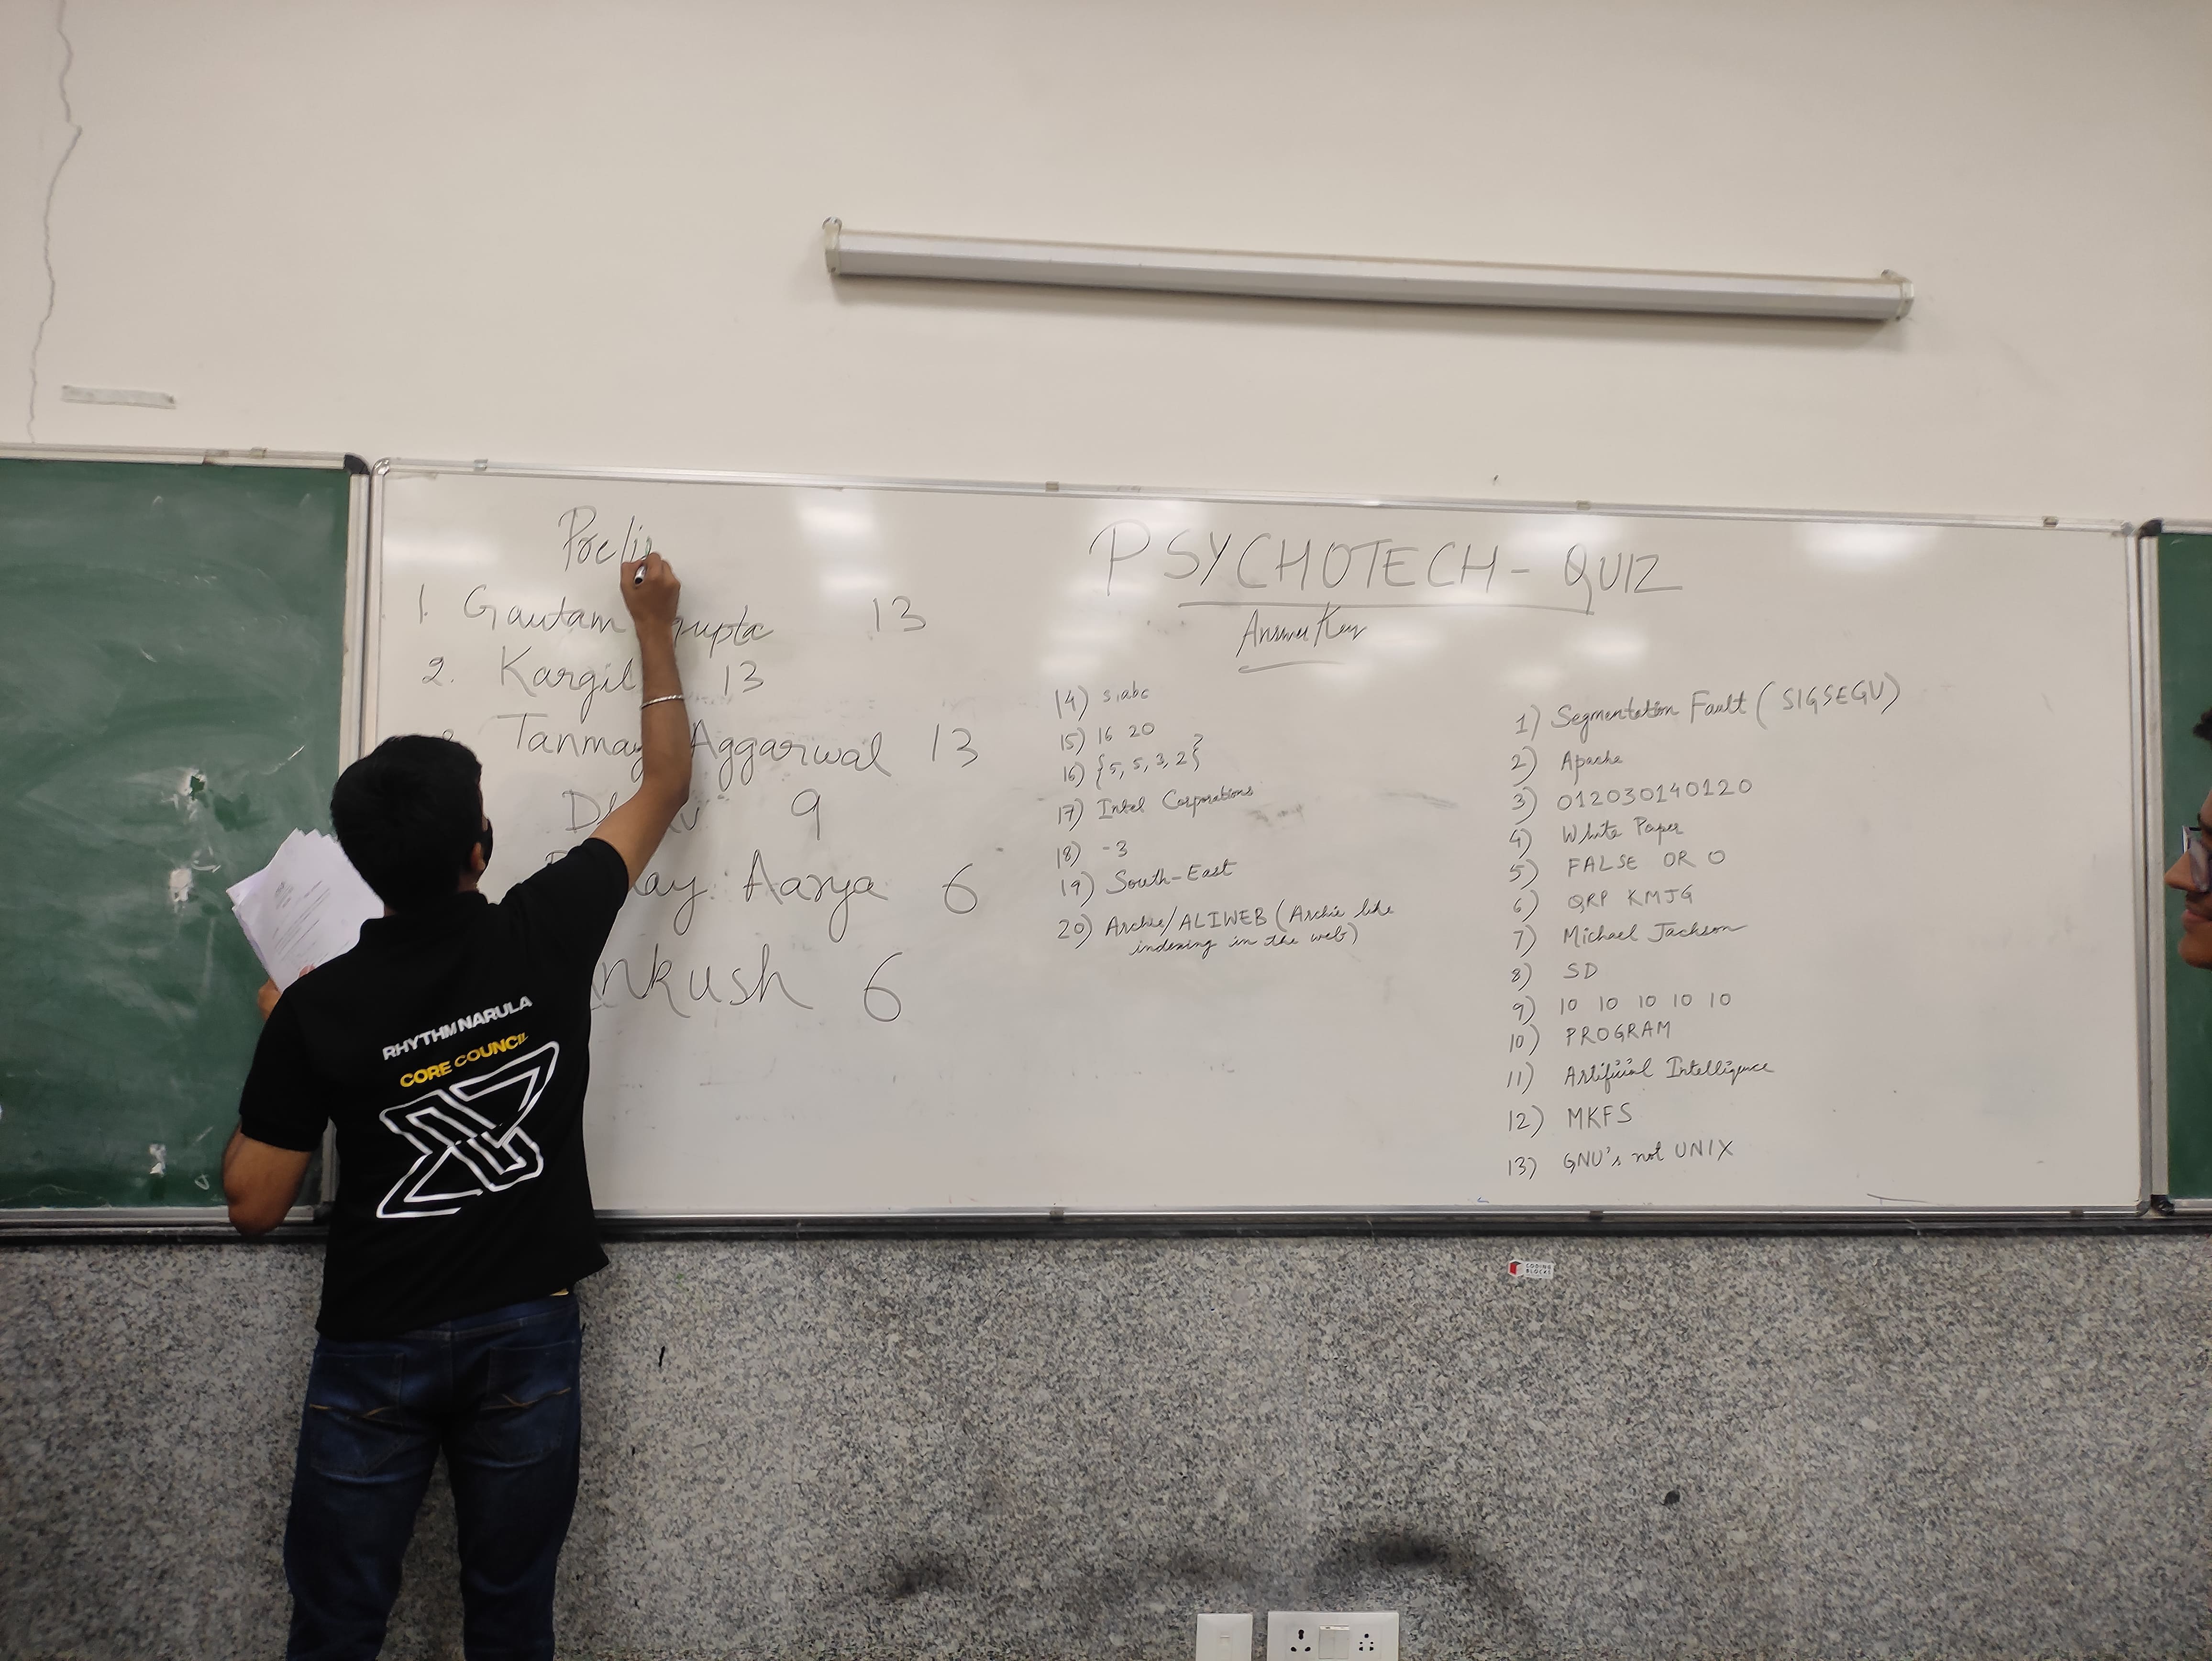 Preli
1. Gautam Gupta 13
2. Kargil 13
Tanmay Aggarwal 13
9
Aarya 6
Ankush 6
PSYCHOTECH - QUIZ
Answer Key
14) 3,abc
15) 16 20
16) {5, 5, 3, 2}
17) Intel Corporations
18) -3
19) South-East
20) Archie/ALIWEB (Archie like
indexing in the web)
1) Segmentation Fault (SIGSEGV)
2) Apache
3) 012030140120
4) White Paper
5) FALSE OR 0
6) QRP KMJG
7) Michael Jackson
8) SD
9) 10 10 10 10 10
10) PROGRAM
11) Artificial Intelligence
12) MKFS
13) GNU's not UNIX
RHYTHM NARULA
CORE COUNCIL
CODING
BLOCKS